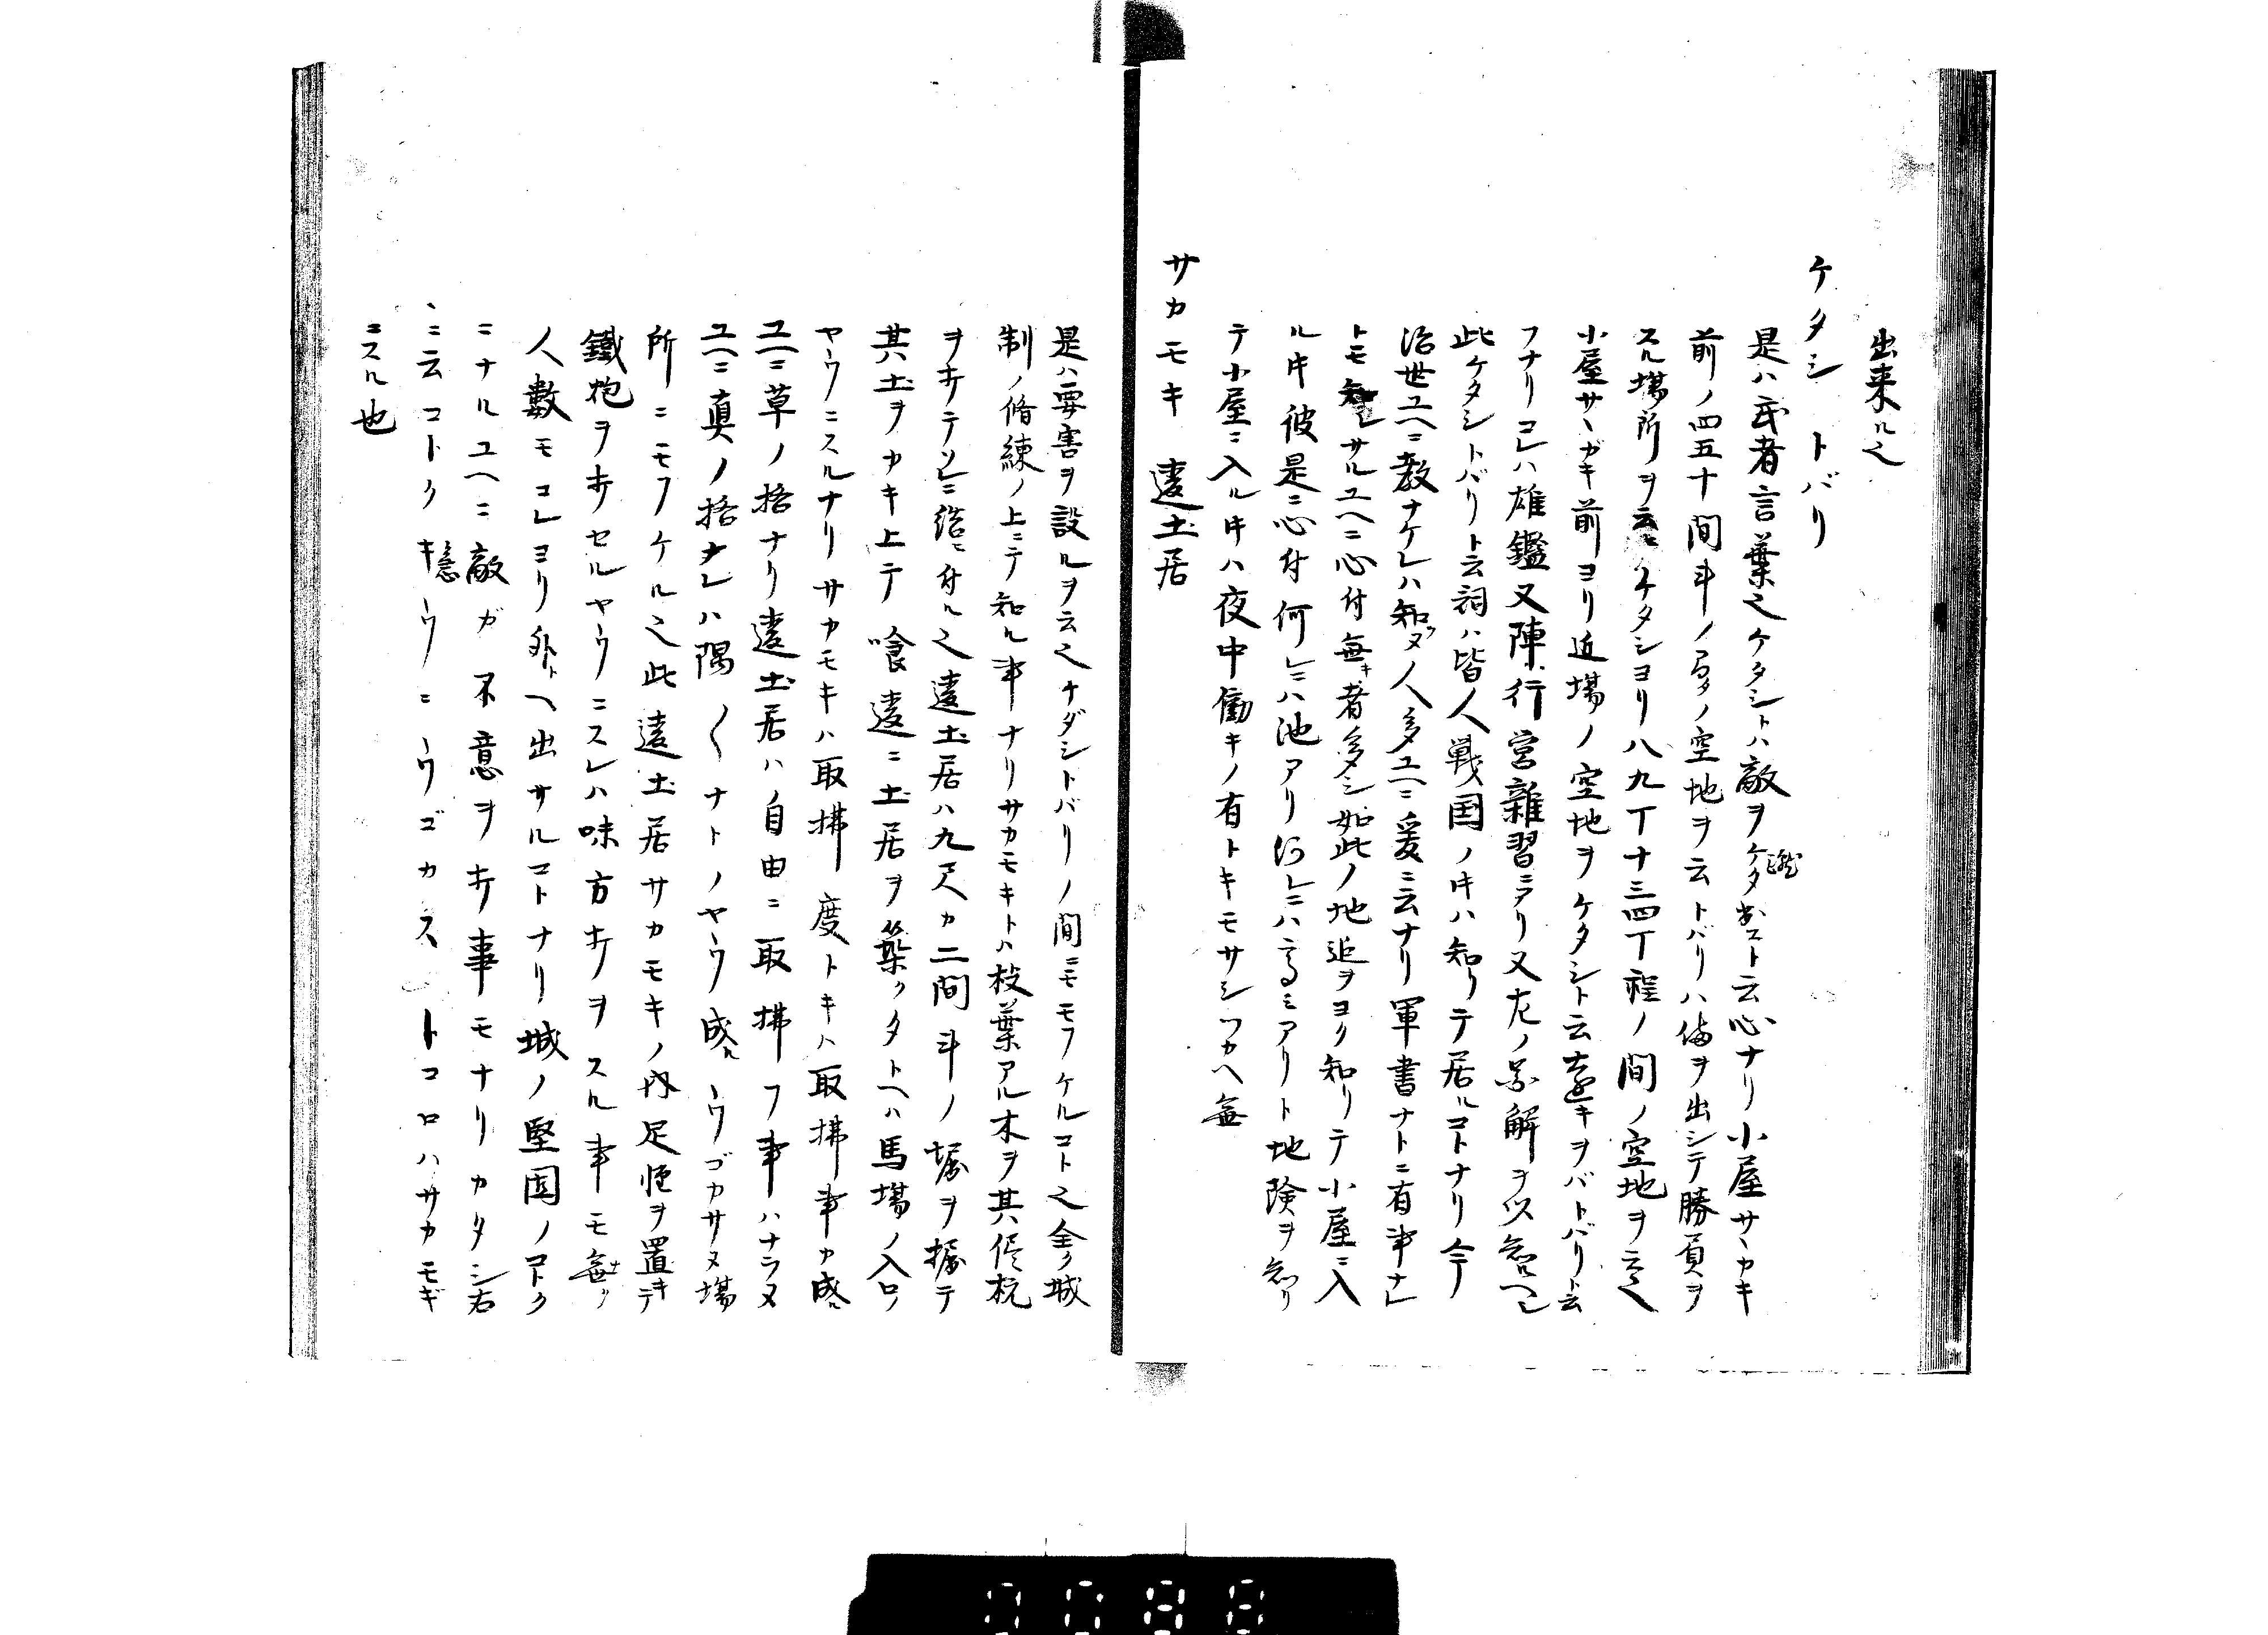 出来ル之
ケタシ トバリ
是ハ武者言葉之ケタシト八敵ヲケタ出スト云心ナリ小屋サヽカキ
前ノ四五十間斗ノ間ノ空地ヲ云トバリハ備ヲ出シテ勝負ヲ
スル場所ヲ云ケタシヨリ八九丁十三四丁程ノ間ノ空地ヲ云之
小屋サヽガキ前ヨリ近場ノ空地ヲケタシト云遠キヲバトバリト云
フナリコレハ雄鑑又陣行営雑習ニアリ又左ノ図解ヲ以知ヘシ
此ケタシトバリト云詞ハ皆人戦国ノ時ハ知リテ居ルコトナリ今
治世ユヘニ教ナケレハ知ヌ人多ユヘニ爰ニ云ナリ軍書ナトニ有事ナレ
トモ知レサルユヘニ心付無キ者多シ如此ノ地追ヲヨク知リテ小屋ニ入
ル時彼是ニ心付何レニハ池アリ何レニハ高ミアリト地険ヲ知リ
テ小屋ニ入ル時ハ夜中働キノ有トキモサシツカヘ無
サカモキ 遠土居
是ハ要害ヲ設ルヲ云之ナダシトバリノ間ニモモフケルコト之全ク城
制ノ脩練ノ上ニテ知ル事ナリサカモキトハ枝葉アル木ヲ其侭杭
ヲ打テソレニ結ヒ付ル之遠土居ハ九尺カ二間斗ノ堀ヲ掘テ
其土ヲカキ上テ喰違ニ土居ヲ築クタトヘハ馬場ノ入口ノ
ヤウニスルナリサカモキハ取拂度トキハ取拂事カ成ル
ユヘニ草ノ括ナリ遠土居ハ自由ニ取拂フ事ハナラヌ
ユヘニ真ノ括ナレハ隅〱ナトノヤウ成ルウゴカサヌ場
所ニモフケル之此遠土居サカモキノ内足軽ヲ置キテ
鐵炮ヲ打セルヤウニスレハ味方打ヲスル事モ無ク
人數モコレヨリ外トヘ出サルコトナリ城ノ堅固ノコトク
ニナルユヘニ敵ガ不意ヲ打事モナリカタシ右
ニ云コトクキウニウゴカストコロハサカモギ
ニスル也